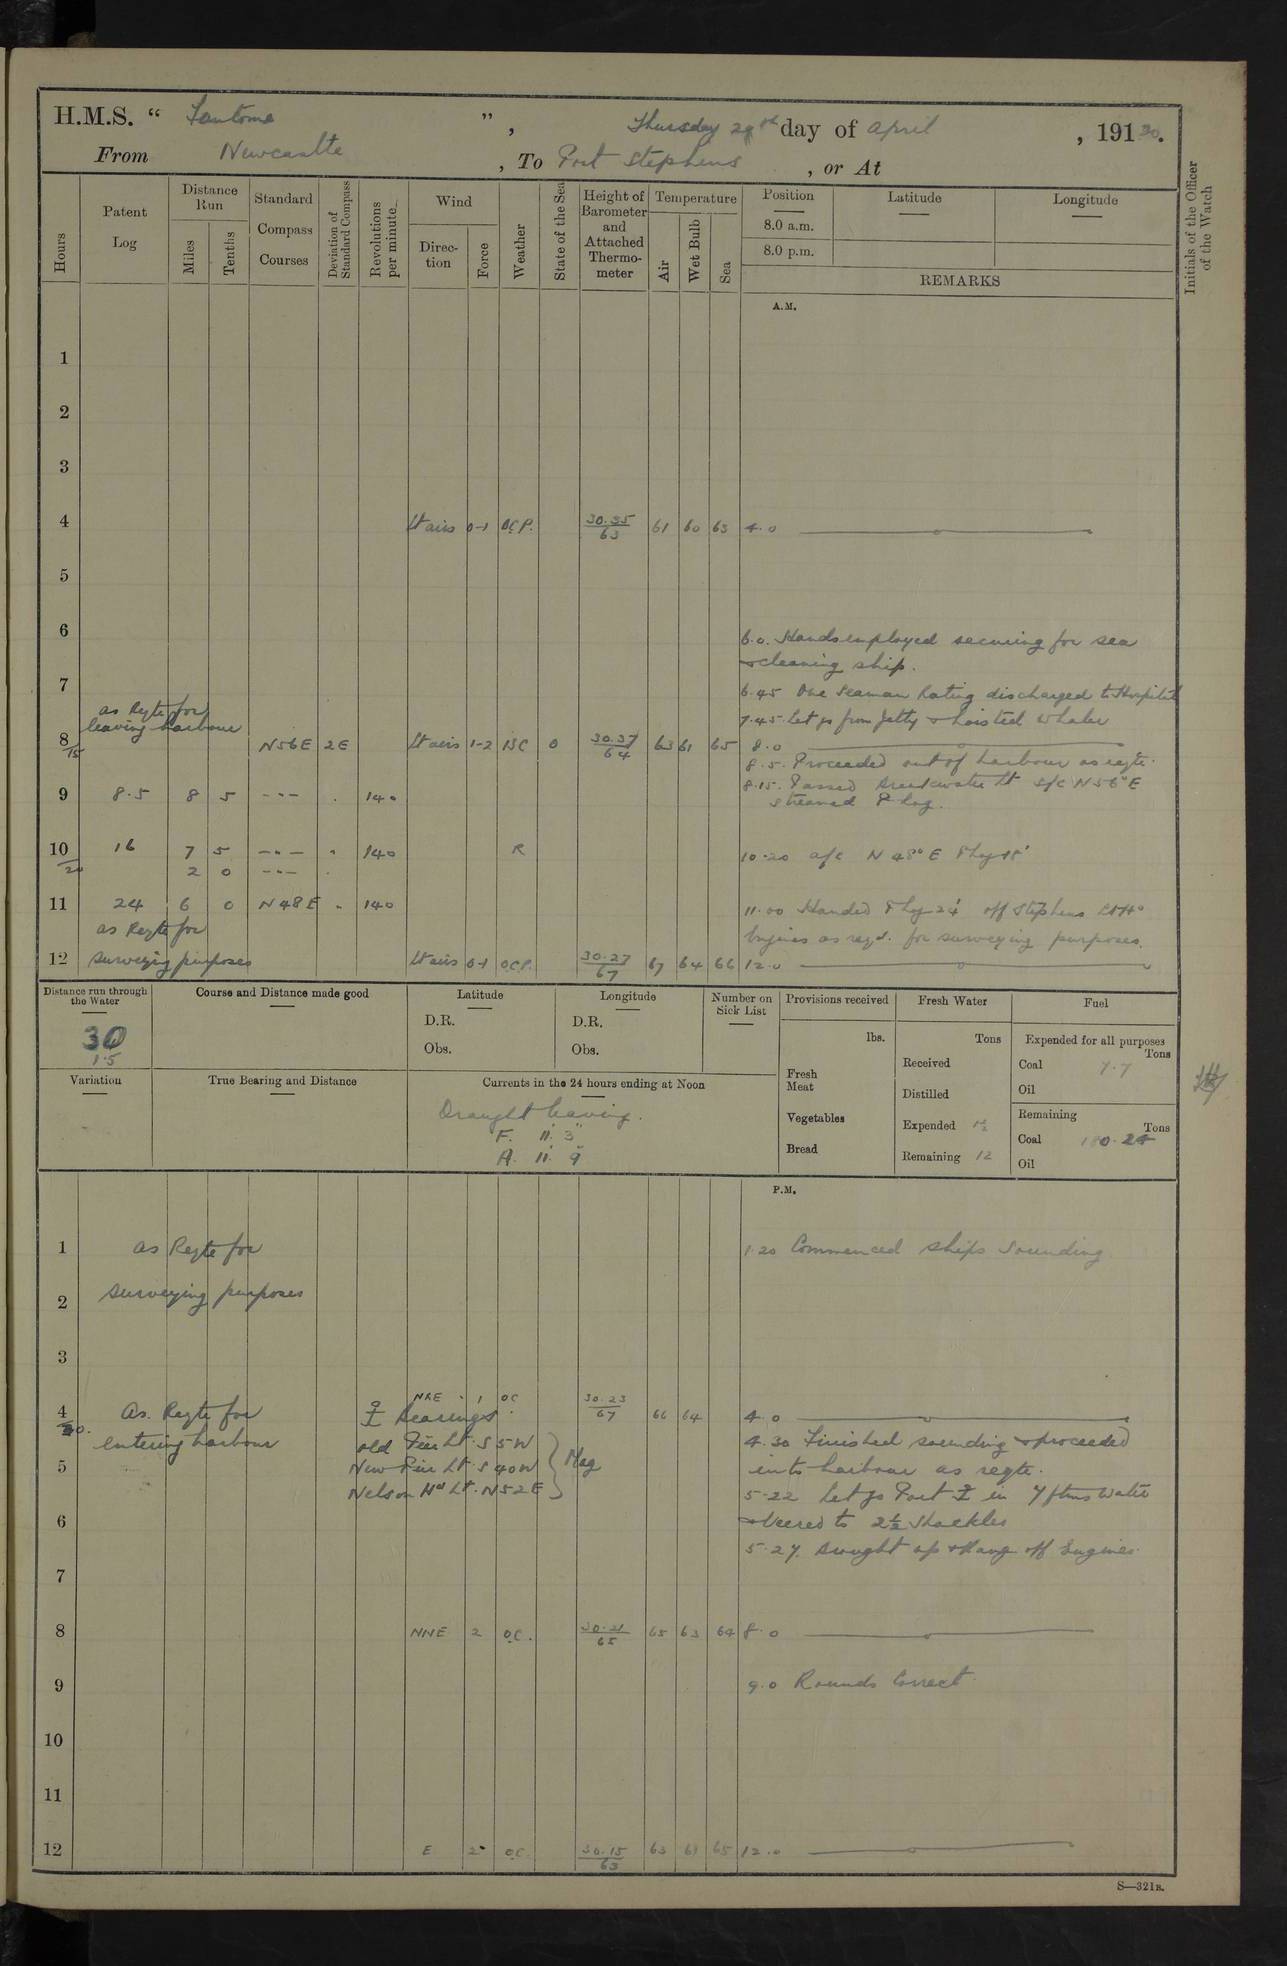 H.M.S. “ Fantome ” , Thursday 29th day of April , 19120.
From Newcastle , To Port Stephens , or At
Hours
Patent Log
Distance Run
Miles
Tenths
Standard Compass Courses
Deviation of Standard Compass
Revolutions per minute
Wind
Direc-tion
Force
Weather
State of the Sea
Height of Barometer and Attached Thermo-meter
Temperature
Air
Wet Bulb
Sea
Position
8.0 a.m.
8.0 p.m.
Latitude
Longitude
REMARKS
Initials of the Officer of the Watch
A.M.
1
2
3
4 Lt airs 0-1 OCP. 30.35/63 61 60 63 4.0
5
6
6.0. Hands employed securing for sea
& cleaning ship.
7
6.45 One Seaman Rating discharged to Hospital
as Reqte for
leaving harbour
7.45. Let go from Jetty & hoisted whaler
8/15 N56E 2E Lt airs 1-2 BC 0 30.37/64 63 61 65 8.0
8.5. Proceeded out of harbour as reqte.
8.15. Passed Breakwater Lt S/c N56°E
streamed P log.
9 8.5 8 5 -"- . 140
10 16 7 5 -"- " 140 R
/20 2 0 -"- .
10.20 a/c N48°E P log 18'
11 24 6 0 N48E " 140
11.00 Handed P log 24' off Stephens Lt Ho
as Reqte for
Engines as reqd. for surveying purposes.
12 surveying purposes Lt airs 0-1 O.C.P. 30.27/67 67 64 66 12.0
Distance run through the Water
30
1.5
Course and Distance made good
Latitude
D.R.
Obs.
Longitude
D.R.
Obs.
Number on Sick List
Provisions received
lbs.
Fresh Meat
Vegetables
Bread
Fresh Water
Tons
Received
Distilled
Expended 1½
Remaining 12
Fuel
Expended for all purposes
Tons
Coal 7.7
Oil
Remaining
Tons
Coal 180.24
Oil
Variation
True Bearing and Distance
Currents in the 24 hours ending at Noon
Draught leaving.
F. 11' 3"
A. 11' 9"
P.M.
1 as Reqte for
1.20 Commenced ships sounding
2 surveying purposes
3
4 As. Reqte for NNE 1 OC 30.23/67 66 64 4.0
/30. entering harbour
Bearings
old Pier Lt. S 5 W
New Pier Lt. S 40 W
Nelson Hd Lt. N 52 E
Mag
4.30 Finished sounding & proceeded
into harbour as reqte.
5
5.22 Let go Port ⚓ in 7 fthms water
6
& veered to 2½ Shackles
5.27. Brought up & Rang off Engines.
7
8 NNE 2 O.C. 30.21/65 65 63 64 8.0
9
9.0 Rounds Correct.
10
11
12 E 2 OC. 30.15/63 63 61 65 12.0
S—321B.